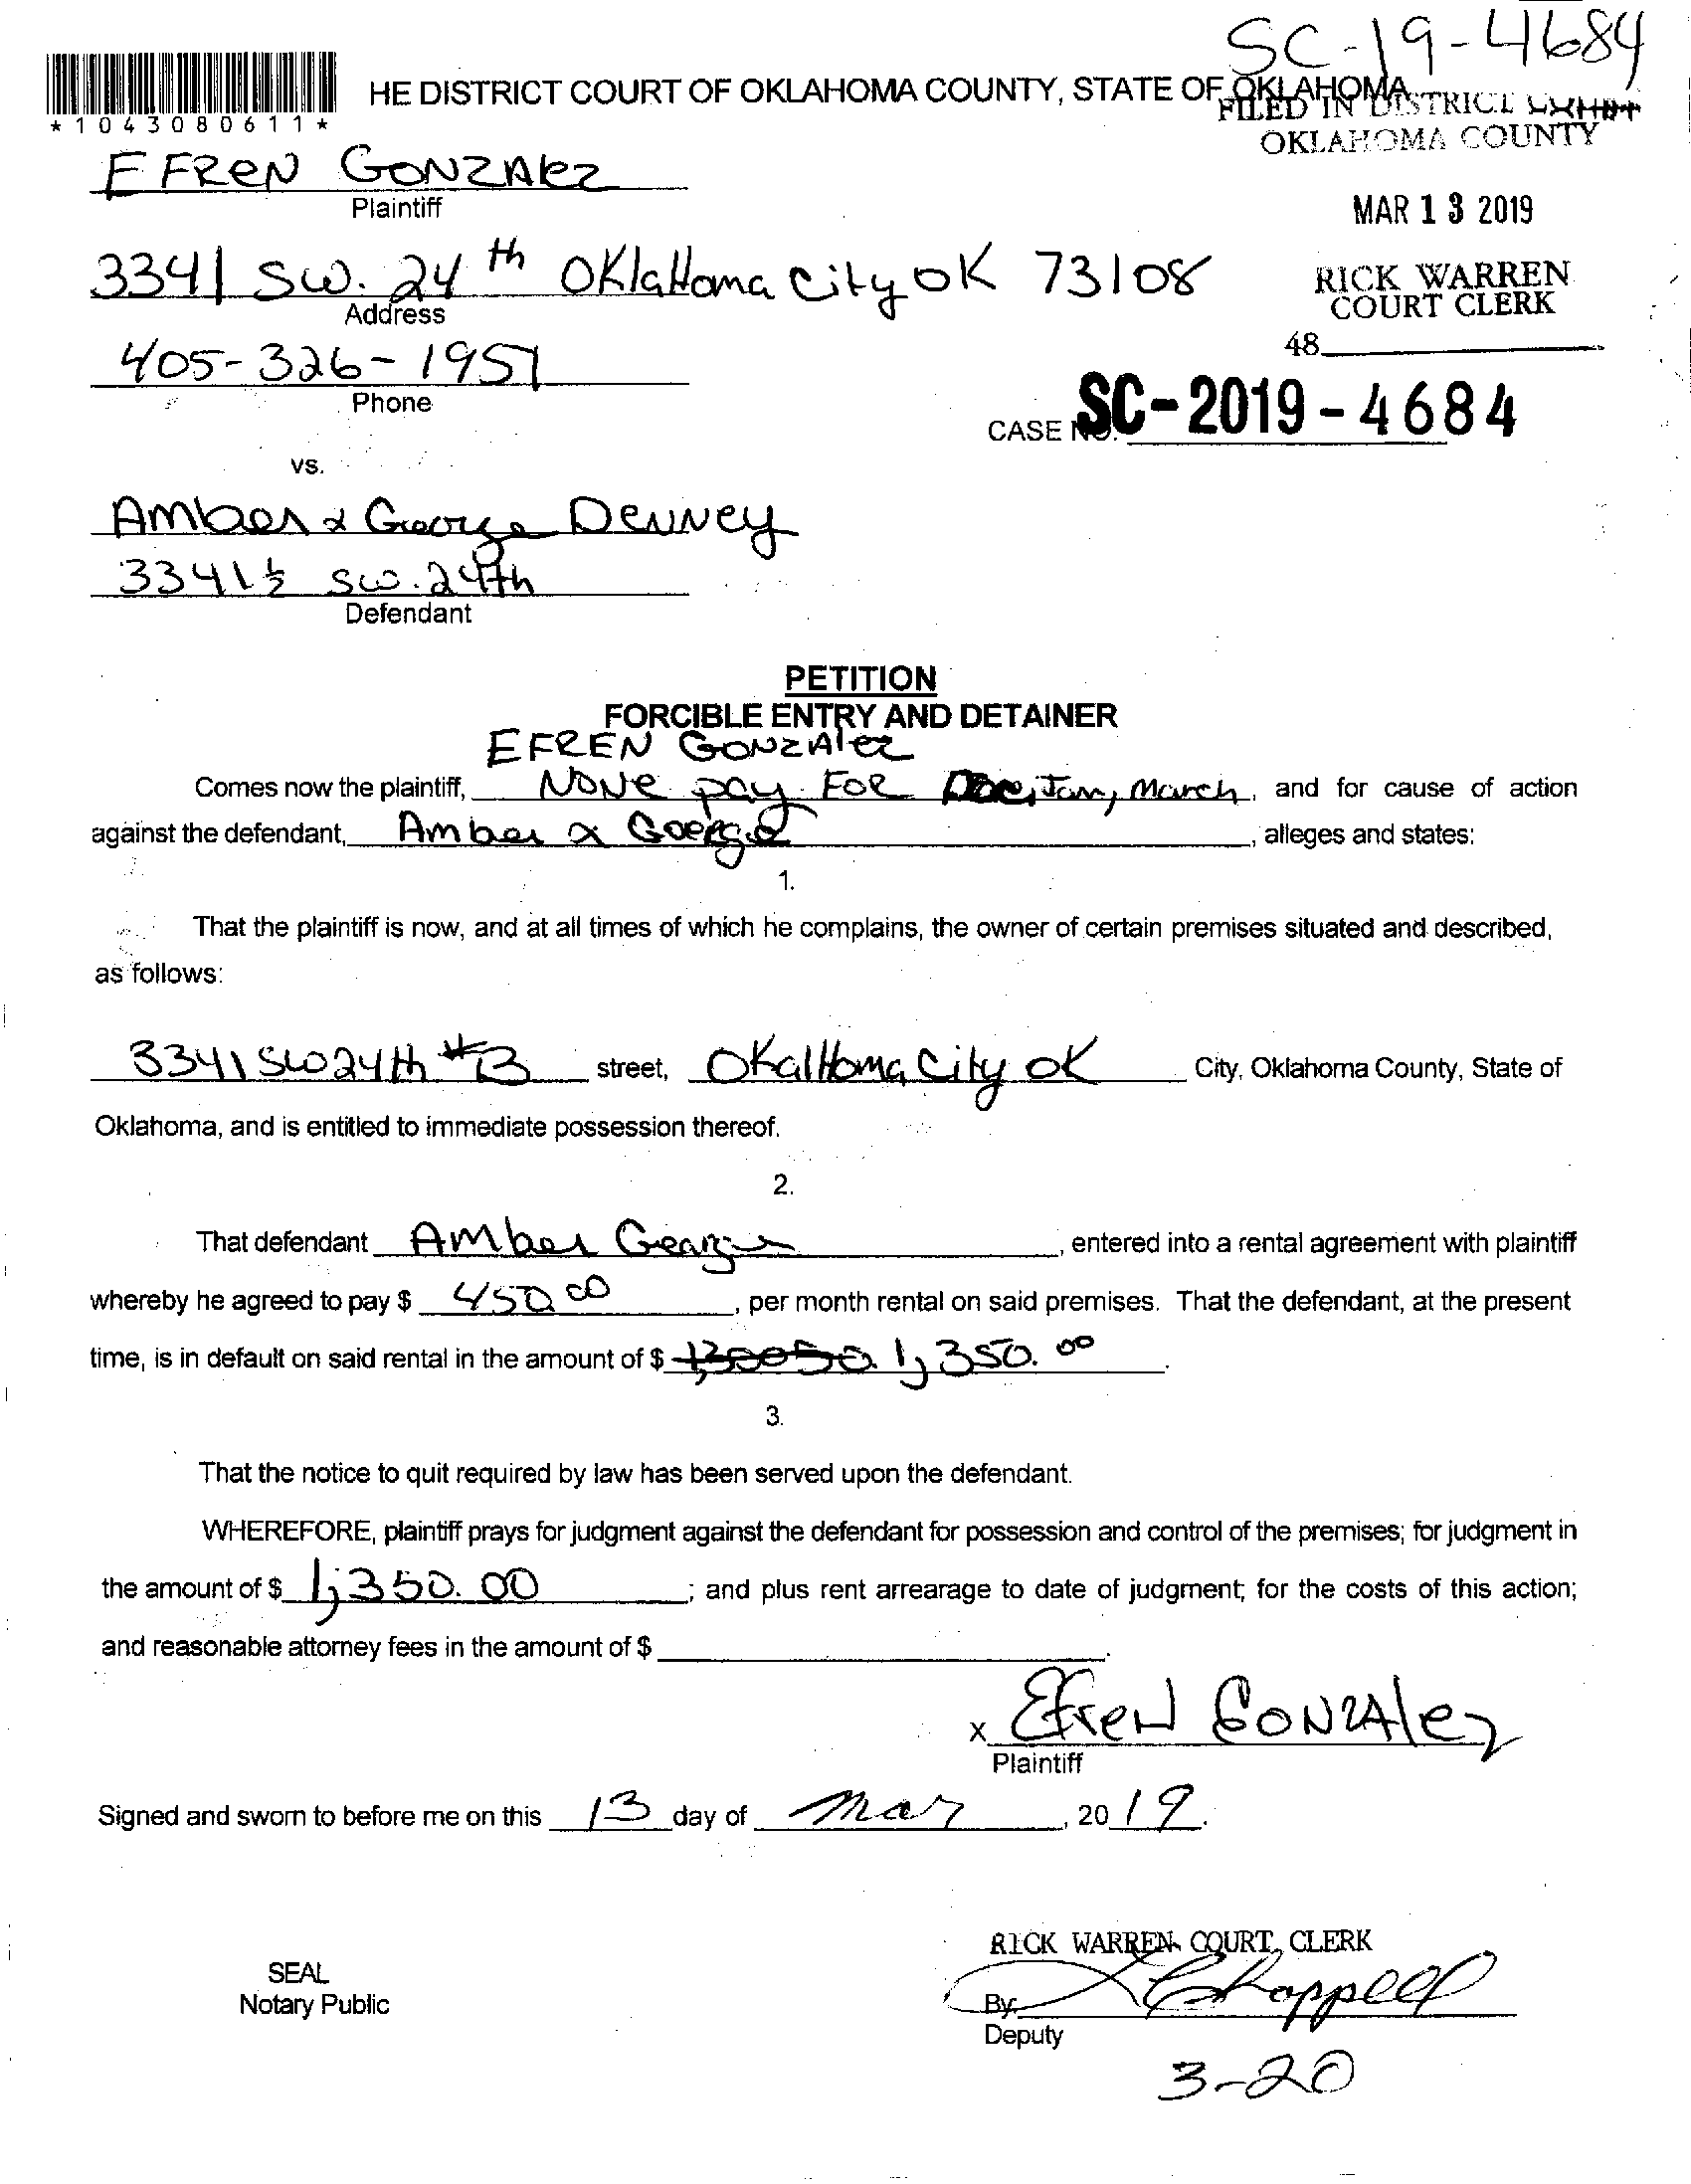 SC-19-4684
HE DISTRICT COURT OF OKLAHOMA COUNTY, STATE OF OKLAHOMA
*1043080611*
FILED IN DISTRICT
OKLAHOMA COUNTY
EFREN GONZAlez
Plaintiff
MAR 13 2019
3341 SW. 24th OklaHoma City OK 73108
Address
RICK WARREN
COURT CLERK
405-326-1951
Phone
48
CASE NO. SC-2019-4684
vs.
Amber & George Denney
3341½ SW. 24th
Defendant
PETITION
FORCIBLE ENTRY AND DETAINER
EFREN GONZAlez
Comes now the plaintiff, NONe pay For Jan, March, and for cause of action
against the defendant, Amber & Goerge, alleges and states:
1.
That the plaintiff is now, and at all times of which he complains, the owner of certain premises situated and described,
as follows:
3341 SW 24th #B street, OkalHoma City OK City, Oklahoma County, State of
Oklahoma, and is entitled to immediate possession thereof.
2.
That defendant Amber, entered into a rental agreement with plaintiff
whereby he agreed to pay $ 450.00, per month rental on said premises. That the defendant, at the present
time, is in default on said rental in the amount of $ 1,350.00.
3.
That the notice to quit required by law has been served upon the defendant.
WHEREFORE, plaintiff prays for judgment against the defendant for possession and control of the premises; for judgment in
the amount of $ 1,350.00; and plus rent arrearage to date of judgment; for the costs of this action;
and reasonable attorney fees in the amount of $.
x Efren GONZAlez
Plaintiff
Signed and sworn to before me on this 13 day of Mar, 2019.
RICK WARREN COURT CLERK
SEAL
Notary Public
By: Chappell
Deputy
3-20